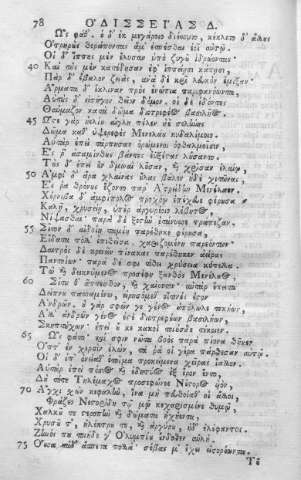 78 ὈΔΙΣΣΕΓΑΣ Δ.
Ὣς φάθ', ὁ δ' ἐκ μεγάροιο διέσσυτο, κέκλετο δ' ἄλλους
Ὀτρηροὺς θεράποντας ἅμ' ἑσπέσθαι ἑοῖ αὐτῷ.
Οἱ δ' ἵππους μὲν ἔλυσαν ὑπὸ ζυγοῦ ἱδρώοντας·
40 Καὶ τοὺς μὲν κατέδησαν ἐφ' ἱππείῃσι κάπῃσι,
Πὰρ δ' ἔβαλον ζειὰς, ἀνὰ δὲ κρῖ λευκὸν ἔμιξαν·
Ἅρματα δ' ἔκλιναν πρὸς ἐνώπια παμφανόωντα,
Αὐτοὺς δ' εἰσῆγον θεῖον δόμον. οἱ δὲ ἰδόντες
Θαύμαζον κατὰ δῶμα διοτρεφέος βασιλῆος·
45 Ὥς τε γὰρ ἠελίου αἴγλη πέλεν ἠὲ σελήνης
Δῶμα καθ' ὑψερεφὲς Μενελάου κυδαλίμοιο.
Αὐτὰρ ἐπεὶ τάρπησαν ὁρώμενοι ὀφθαλμοῖσιν,
Ἔς ῥ' ἀσαμίνθους βάντες ἐϋξέστας λούσαντο.
Τοὺς δ' ἐπεὶ οὖν δμωαὶ λοῦσαν, καὶ χρῖσαν ἐλαίῳ,
50 Ἀμφὶ δ' ἄρα χλαίνας οὔλας βάλον ἠδὲ χιτῶνας,
Ἔς ῥα θρόνους ἕζοντο παρ' Ἀτρείδην Μενέλαον.
Χέρνιβα δ' ἀμφίπολος προχόῳ ἐπέχευε φέρουσα
Καλῇ, χρυσείῃ, ὑπὲρ ἀργυρέοιο λέβητος,
Νίψασθαι· παρὰ δὲ ξεστὴν ἐτάνυσσε τράπεζαν.
55 Σῖτον δ' αἰδοίη ταμίη παρέθηκε φέρουσα,
Εἴδατα πόλλ' ἐπιθεῖσα, χαριζομένη παρεόντων·
Δαιτρὸς δὲ κρειῶν πίνακας παρέθηκεν ἀείρας
Παντοίων· παρὰ δέ σφι τίθει χρύσεια κύπελλα.
Τὼ καὶ δεικνύμενος προσέφη ξανθὸς Μενέλαος,
60 Σίτου θ' ἅπτεσθον, καὶ χαίρετον· αὐτὰρ ἔπειτα
Δείπνου πασσαμένω, εἰρησόμεθ' οἵτινές ἐστον
Ἀνδρῶν, οὐ γὰρ σφῶν γε γένος ἀπόλωλε τοκήων·
Ἀλλ' ἀνδρῶν γένος ἐστὲ διοτρεφέων βασιλήων,
Σκηπτούχων· ἐπεὶ οὔ κε κακοὶ τοιούσδε τέκοιεν.
65 Ὣς φάτο· καί σφιν νῶτα βοὸς παρὰ πίονα θῆκεν
Ὄπτ' ἐν χερσὶν ἑλὼν, τά ῥά οἱ γέρα πάρθεσαν αὐτῷ.
Οἱ δ' ἐπ' ὀνείαθ' ἑτοῖμα προκείμενα χεῖρας ἴαλλον.
Αὐτὰρ ἐπεὶ πόσιος καὶ ἐδητύος ἐξ ἔρον ἕντο,
Δὴ τότε Τηλέμαχος προσεφώνεε Νέστορος υἱὸν,
70 Ἄγχι σχὼν κεφαλὴν, ἵνα μὴ πευθοίαθ' οἱ ἄλλοι·
Φράζεο Νεστορίδη τῷ ἐμῷ κεχαρισμένε θυμῷ,
Χαλκοῦ τε στεροπὴν, καὶ δώματα ἠχήεντα,
Χρυσοῦ τ', ἠλέκτρου τε, καὶ ἀργύρου, ἠδ' ἐλέφαντος.
Ζηνός που τοιήδε γ' Ὀλυμπίου ἔνδοθεν αὐλή·
75 Ὅσσα τάδ' ἄσπετα πολλά· σέβας μ' ἔχει εἰσορόωντα.
Τὸ